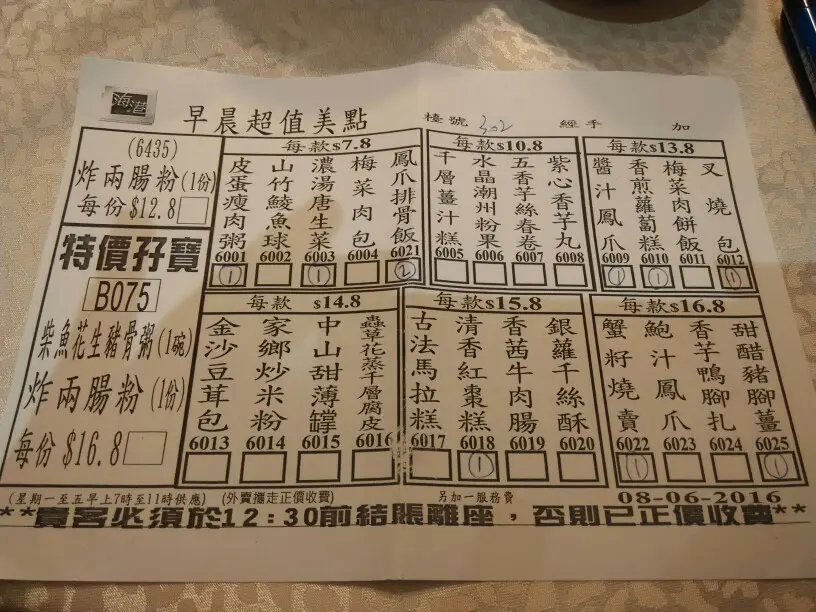 海港
早晨超值美點
檯號 302 經手 加
(6435)
炸兩腸粉(1份)
每份$12.8
特價孖寶
B075
柴魚花生豬骨粥(1碗)
炸兩腸粉(1份)
每份$16.8
每款$7.8
皮蛋瘦肉粥 6001 1
山竹鯪魚球 6002
濃湯唐生菜 6003 1
梅菜肉包 6004
鳳爪排骨飯 6021 2
每款$10.8
千層薑汁糕 6005
水晶潮州粉果 6006
五香芋絲春卷 6007
紫心香芋丸 6008
每款$13.8
醬汁鳳爪 6009 1
香煎蘿蔔糕 6010 1
梅菜肉餅飯 6011
叉燒包 6012 1
每款$14.8
金沙豆茸包 6013
家鄉炒米粉 6014
中山甜薄罉 6015
蟲草花蒸千層腐皮 6016
每款$15.8
古法馬拉糕 6017
清香紅棗糕 6018 1
香茜牛肉腸 6019
銀蘿千絲酥 6020
每款$16.8
蟹籽燒賣 6022 1
鮑汁鳳爪 6023
香芋鴨腳扎 6024
甜醋豬腳薑 6025 1
(星期一至五早上7時至11時供應) (外賣攞走正價收費) 另加一服務費 08-06-2016
**貴客必須於12:30前結賬離座，否則已正價收費**